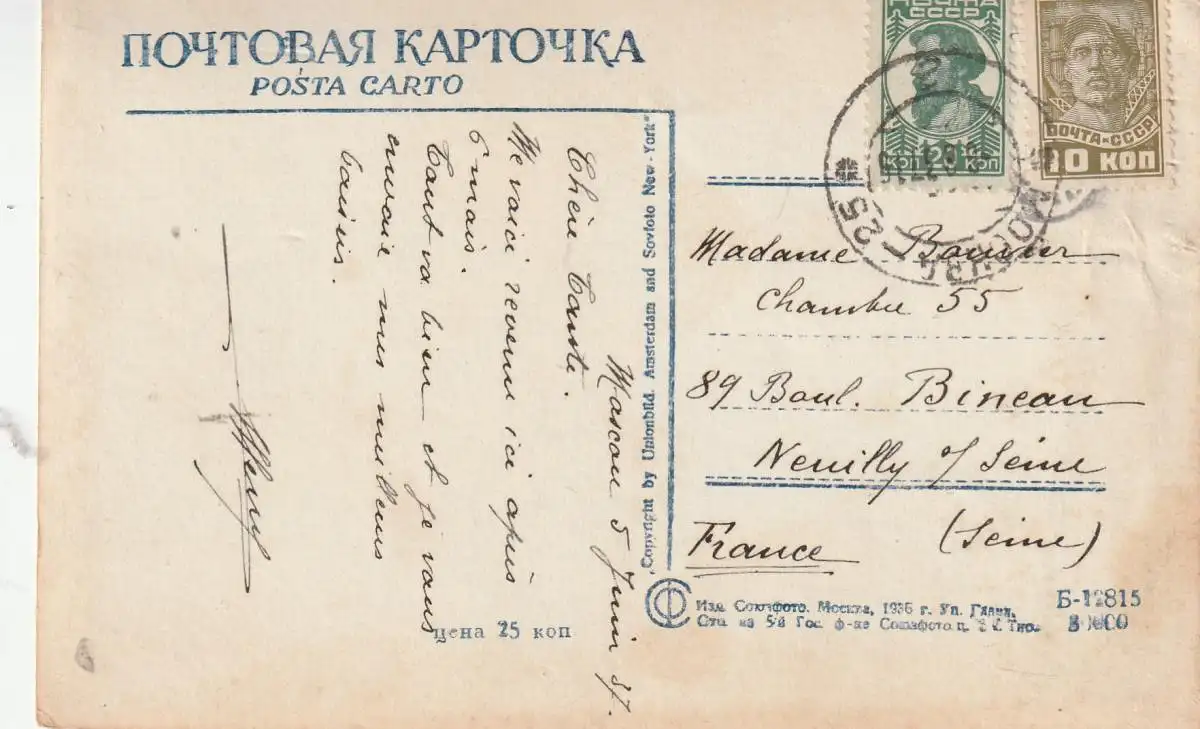 ПОЧТОВАЯ КАРТОЧКА
POŜTA CARTO
ПОЧТА
СССР
20
КОП КОП
ПОЧТА-СССР
10 КОП
МОСКВА
25
Moscou 5 Juin 37.
Chère Tante.
Me voici revenu ici après
6 mois.
Tout va bien et je vous
envoie mes meilleurs
baisers.
Copyright by Unionbild. Amsterdam and Sovfoto New-York
Madame
Chambre 55
89 Boul. Bineau
Neuilly s/ Seine
(Seine)
France
цена 25 коп
Изд. Союзфото. Москва, 1936 г. Уп. Главл.
Отп. на 5й Гос. ф-ке Союзфото
Б-12815